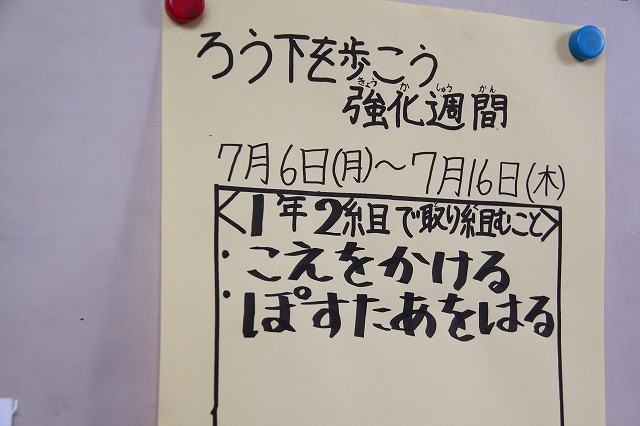 ろう下を歩こう
きょう か しゅう かん
強化週間
7月6日(月)～7月16日(木)
<1年2組で取り組むこと>
・こえをかける
・ぽすたあをはる